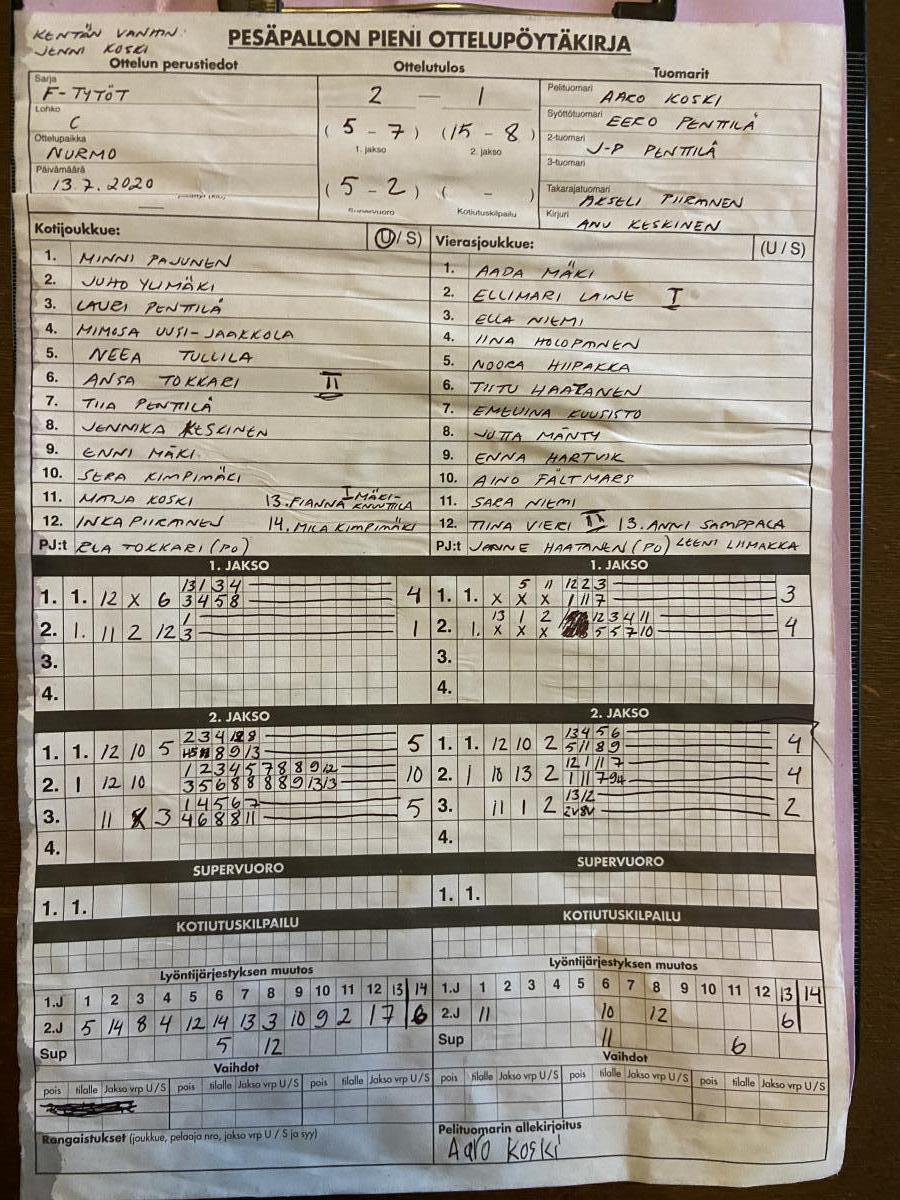 KENTÄN VANHIN:
JENNI KOSKI
PESÄPALLON PIENI OTTELUPÖYTÄKIRJA
Ottelun perustiedot
Sarja
F-TYTÖT
Lohko
C
Ottelupaikka
NURMO
Päivämäärä
13.7.2020
Ottelutulos
2 — 1
(5 - 7) (15 - 8)
1. jakso 2. jakso
(5 - 2) ( - )
Kotiutuskilpailu
Tuomarit
Pelituomari AARO KOSKI
Syöttötuomari EERO PENTTILÄ
2-tuomari J-P PENTTILÄ
3-tuomari
Takarajatuomari AKSELI PIIRAINEN
Kirjuri ANU KESKINEN
Kotijoukkue: (U/S)
1. MINNI PAJUNEN
2. JUHO YLIMÄKI
3. LAURI PENTTILÄ
4. MIMOSA UUSI-JAAKKOLA
5. NEEA TULLILA
6. ANSA TOKKARI II
7. TIIA PENTTILÄ
8. JENNIKA KESKINEN
9. ENNI MÄKI
10. SERA KIMPIMÄKI
11. MAIJA KOSKI 13. FIANNA MÄKI-KNUUTILA I
12. INKA PIIRAINEN 14. MILA KIMPIMÄKI
PJ:t TOKKARI (PO)
Vierasjoukkue: (U/S)
1. AADA MÄKI
2. ELLIMARI LAINE I
3. ELLA NIEMI
4. IINA HOLOPAINEN
5. NOORA HIIPAKKA
6. TIITU HAATANEN
7. EMELIINA KUUSISTO
8. JUTTA MÄNTY
9. ENNA HARTVIK
10. AINO FÄLTMARS
11. SARA NIEMI
12. TIINA VIERI II 13. ANNI SAMPPALA
PJ:t JANNE HAATANEN (PO) LEENI LIIMAKKA
1. JAKSO
1. 1. 12 X 6 13 1 3 4 4
3 4 5 8
2. 1. 11 2 12 1 1
3
3.
4.
1. JAKSO
1. 1. X X X 5 11 12 2 3 3
1 1 7
2. 1. X X X 13 1 2 12 3 4 11 4
5 5 7 10
3.
4.
2. JAKSO
1. 1. 12 10 5 2 3 4 5
8 9 13
2. 1 12 10 1 2 3 4 5 7 8 8 9 12 10
3 5 6 8 8 8 8 9 13 13
3. 11 3 1 4 5 6 7 5
4 6 8 8 11
4.
2. JAKSO
1. 1. 12 10 2 13 4 5 6 4
5 11 8 9
2. 1 10 13 2 12 1 11 7 4
1 11 7
3. 11 1 2 13 12 2
4.
SUPERVUORO
1. 1.
SUPERVUORO
1. 1.
KOTIUTUSKILPAILU
KOTIUTUSKILPAILU
Lyöntijärjestyksen muutos
1.J 1 2 3 4 5 6 7 8 9 10 11 12 13 14
2.J 5 14 8 4 12 14 13 3 10 9 2 17 6
Sup 5 12
Lyöntijärjestyksen muutos
1.J 1 2 3 4 5 6 7 8 9 10 11 12 13 14
2.J 11 10 12 6
Sup 11 6
Vaihdot
pois tilalle Jakso vrp U/S pois tilalle Jakso vrp U/S pois tilalle Jakso vrp U/S
Vaihdot
pois tilalle Jakso vrp U/S pois tilalle Jakso vrp U/S pois tilalle Jakso vrp U/S
Rangaistukset (joukkue, pelaaja nro, jakso vrp U / S ja syy)
Pelituomarin allekirjoitus
Aaro Koski